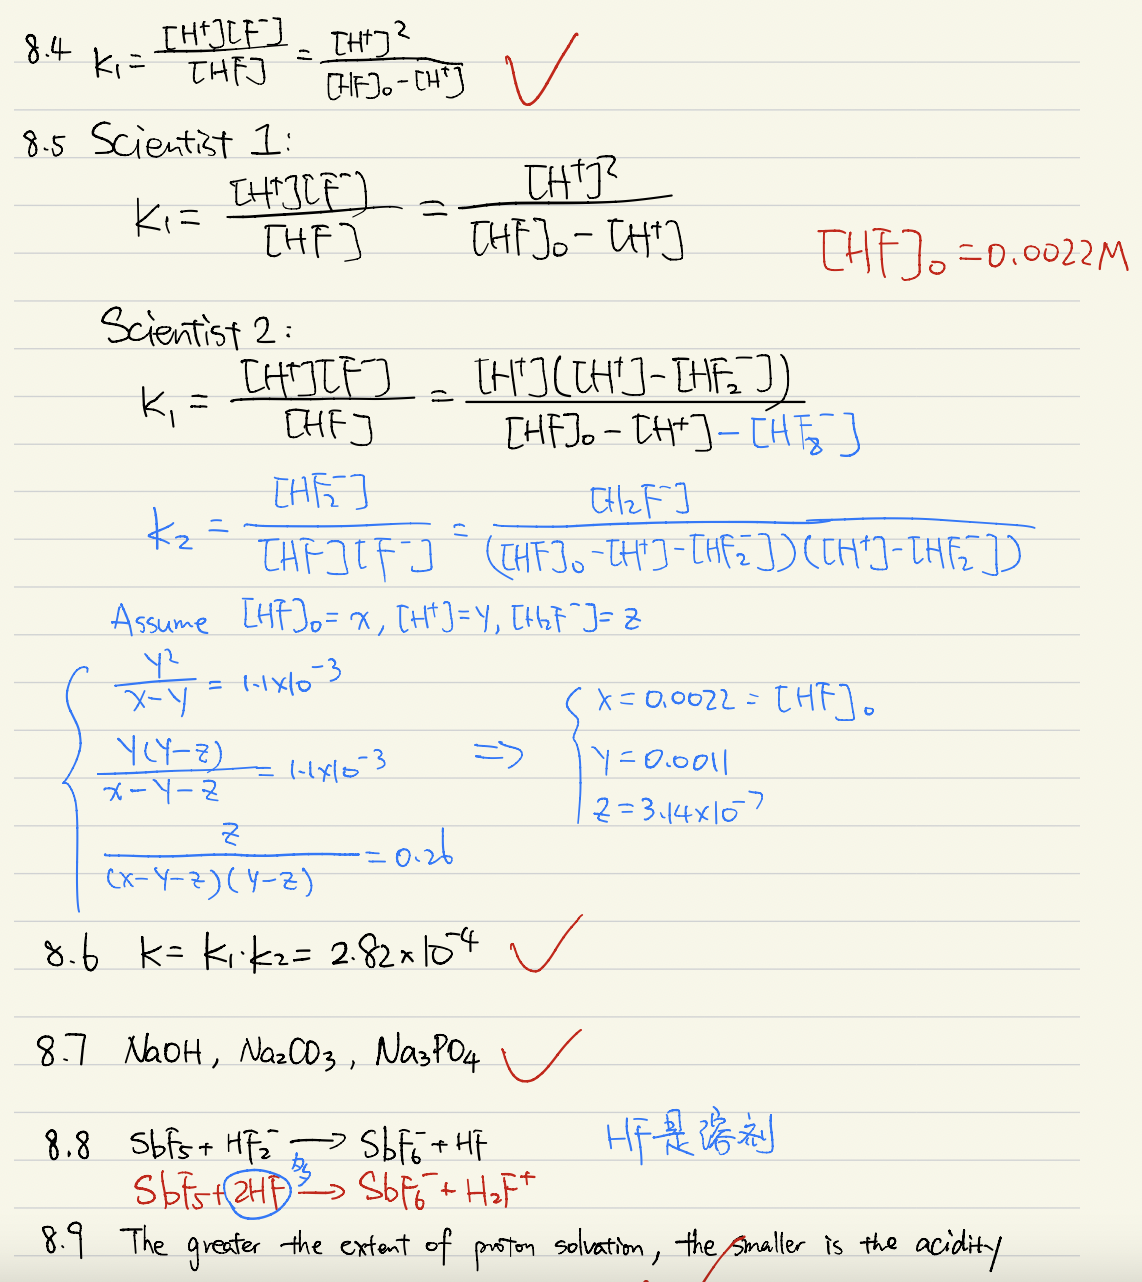 8.4 K₁ = [H⁺][F⁻] / [HF] = [H⁺]² / ([HF]₀ - [H⁺])
8.5 Scientist 1:
K₁ = [H⁺][F⁻] / [HF] = [H⁺]² / ([HF]₀ - [H⁺])
[HF]₀ = 0.0022M
Scientist 2:
K₁ = [H⁺][F⁻] / [HF] = [H⁺]([H⁺] - [HF₂⁻]) / ([HF]₀ - [H⁺] - [HF₂⁻])
K₂ = [HF₂⁻] / [HF][F⁻] = [H₂F⁻] / ([HF]₀ - [H⁺] - [HF₂⁻])([H⁺] - [HF₂⁻])
Assume [HF]₀ = x, [H⁺] = y, [H₂F⁻] = z
y² / (x - y) = 1.1×10⁻³
y(y - z) / (x - y - z) = 1.1×10⁻³
z / (x - y - z)(y - z) = 0.26
⇒
x = 0.0022 = [HF]₀
y = 0.0011
z = 3.14×10⁻⁷
8.6 K = K₁·K₂ = 2.82×10⁻⁴
8.7 NaOH, Na₂CO₃, Na₃PO₄
8.8 SbF₅ + HF₂⁻ → SbF₆⁻ + HF
HF是溶剂
多
SbF₅ + 2HF → SbF₆⁻ + H₂F⁺
8.9 The greater the extent of proton solvation, the smaller is the acidity